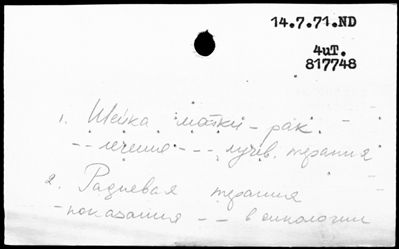 14.7.71.ND
4uT.
817748
1. Шейка матки – рак.
- - лечение - - - лучев. терапия
2. Радиевая терапия
- показания - - в онкологии